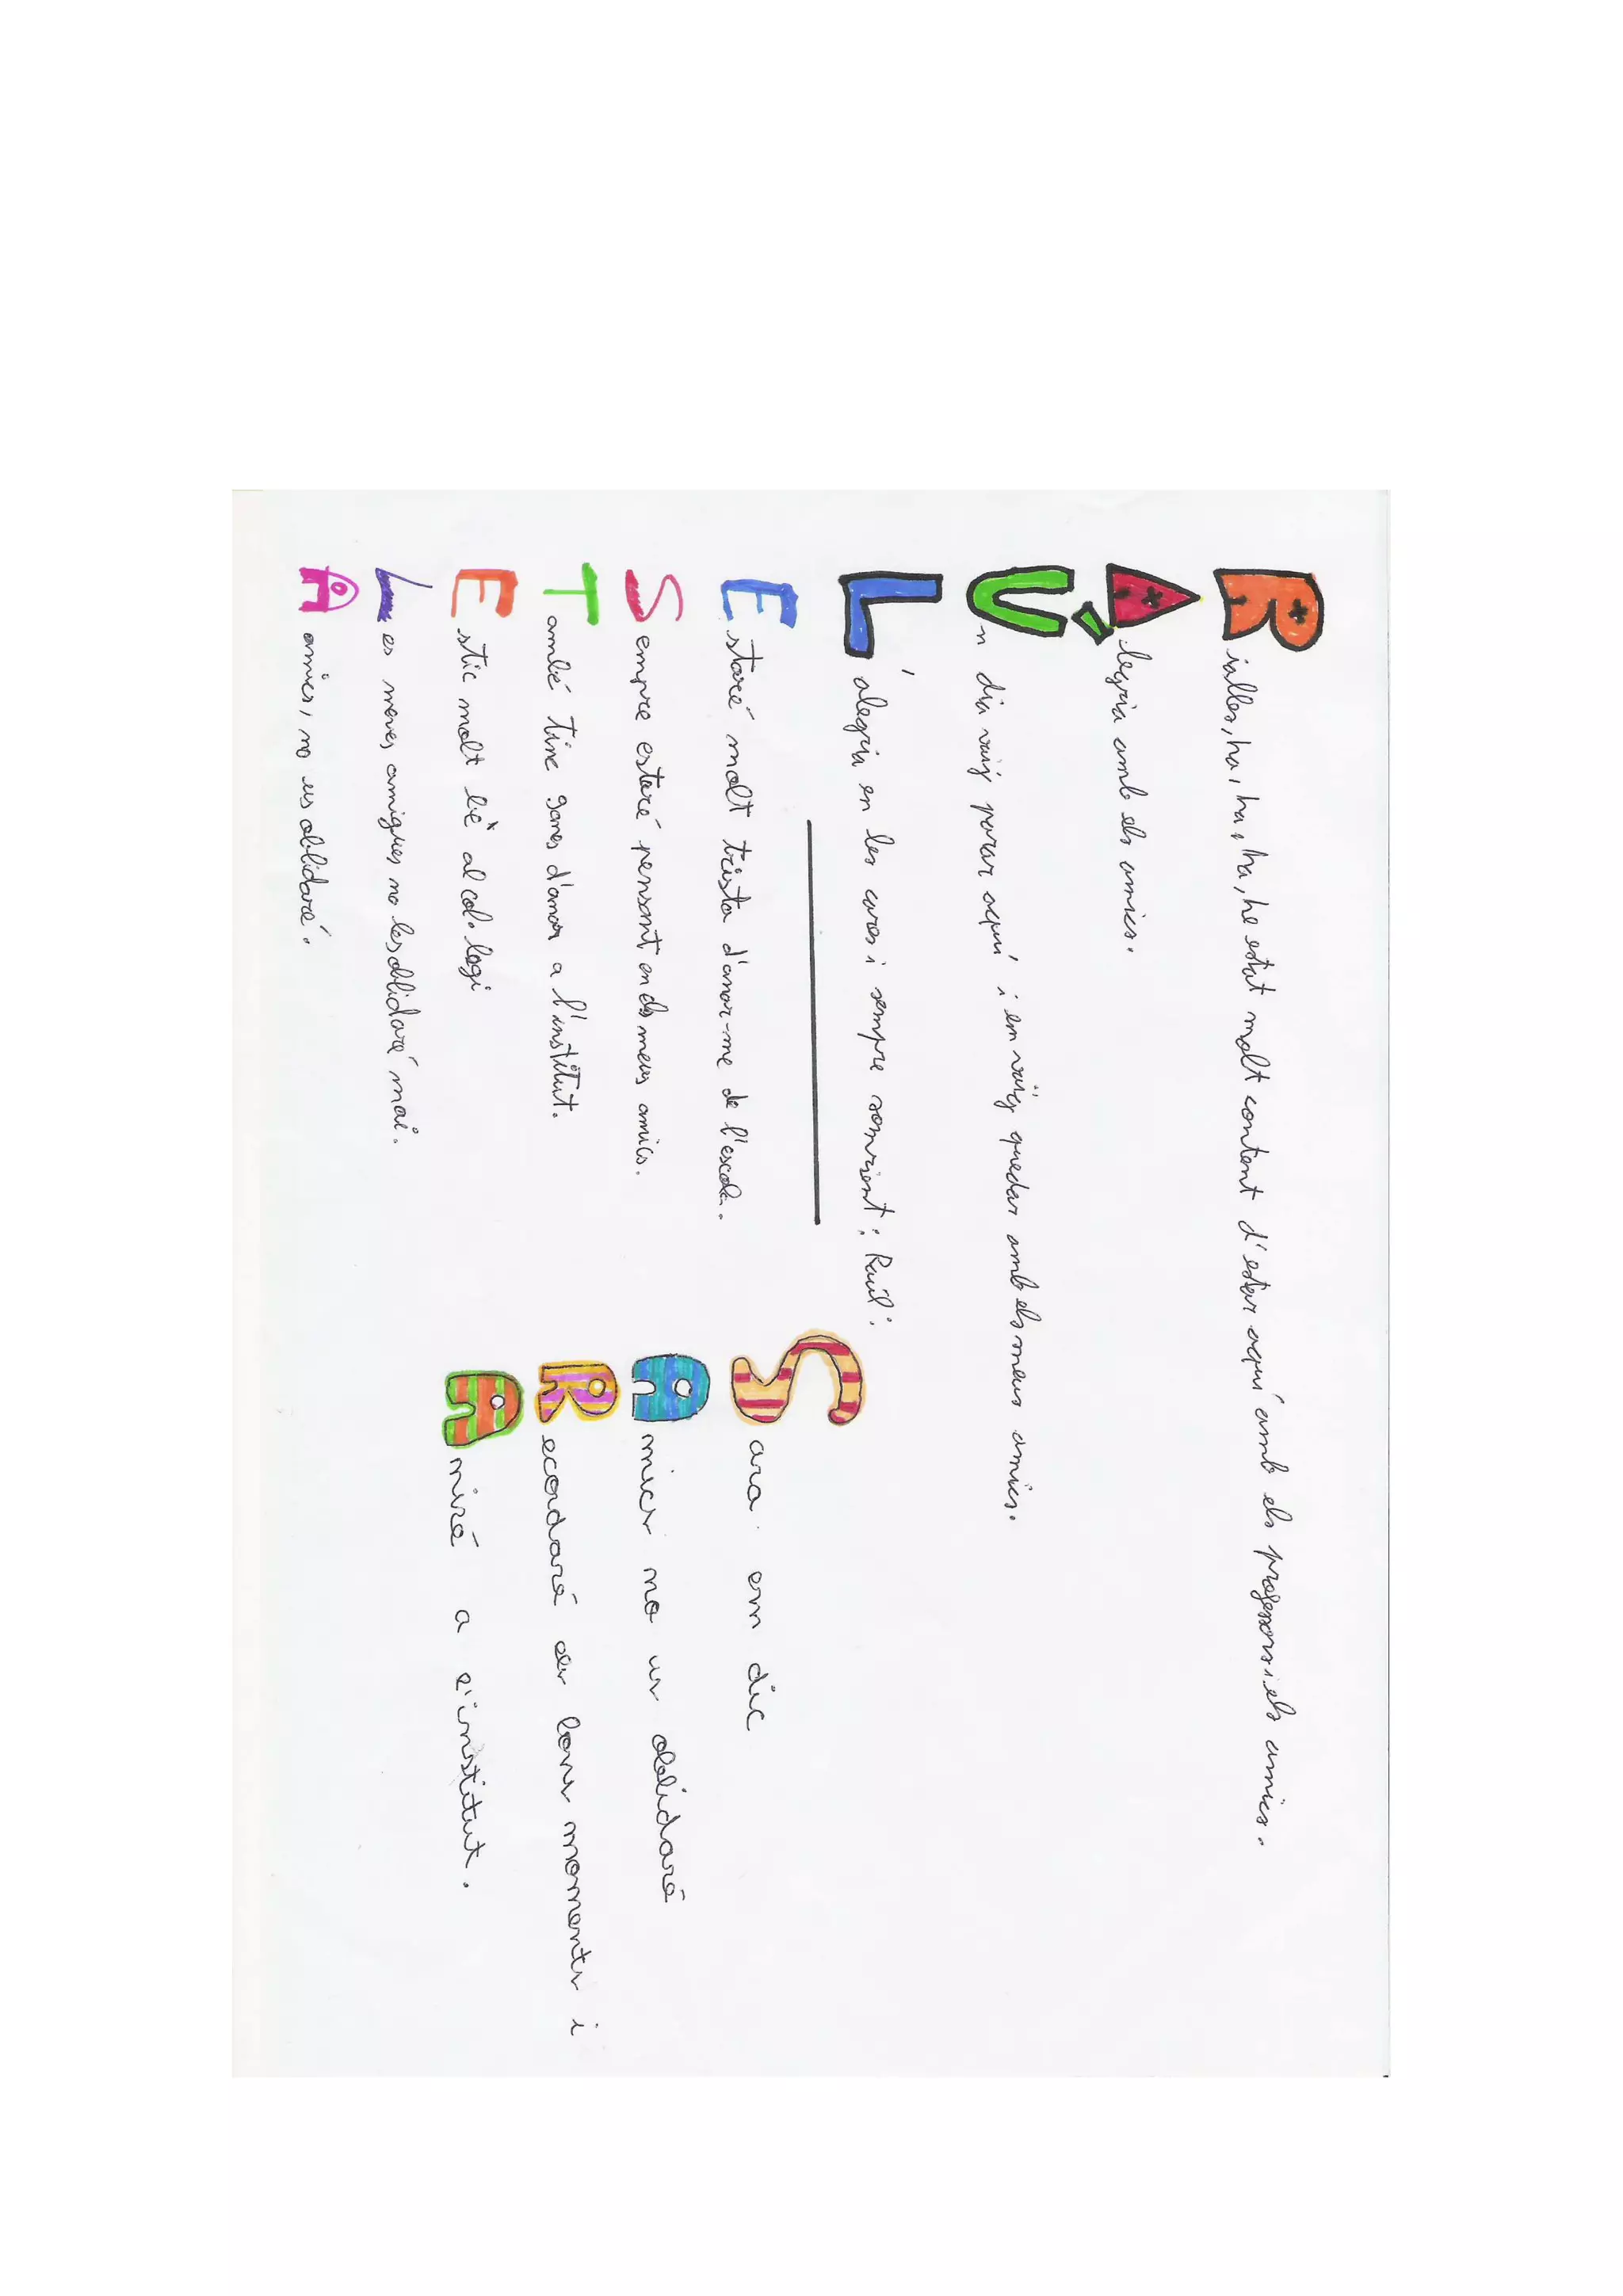 Rialles, ha, ha, ha, he estat molt content d'estar aquí amb els professors i els amics.
Alegria amb els amics.
Un dia vaig parar aquí i em vaig quedar amb els meus amics.
L'alegria en les cares i sempre somrient: Raúl:
Estaré molt trista d'anar-me de l'escola.
Sempre estaré pensant en els meus amics.
També tinc ganes d'anar a l'institut.
Estic molt bé al col·legi
Les meves amigues no les oblidaré mai.
A amics, no us oblidaré.
Sara em dic
Amics no us oblidaré
Recordaré els bons moments i
Aniré a l'institut.